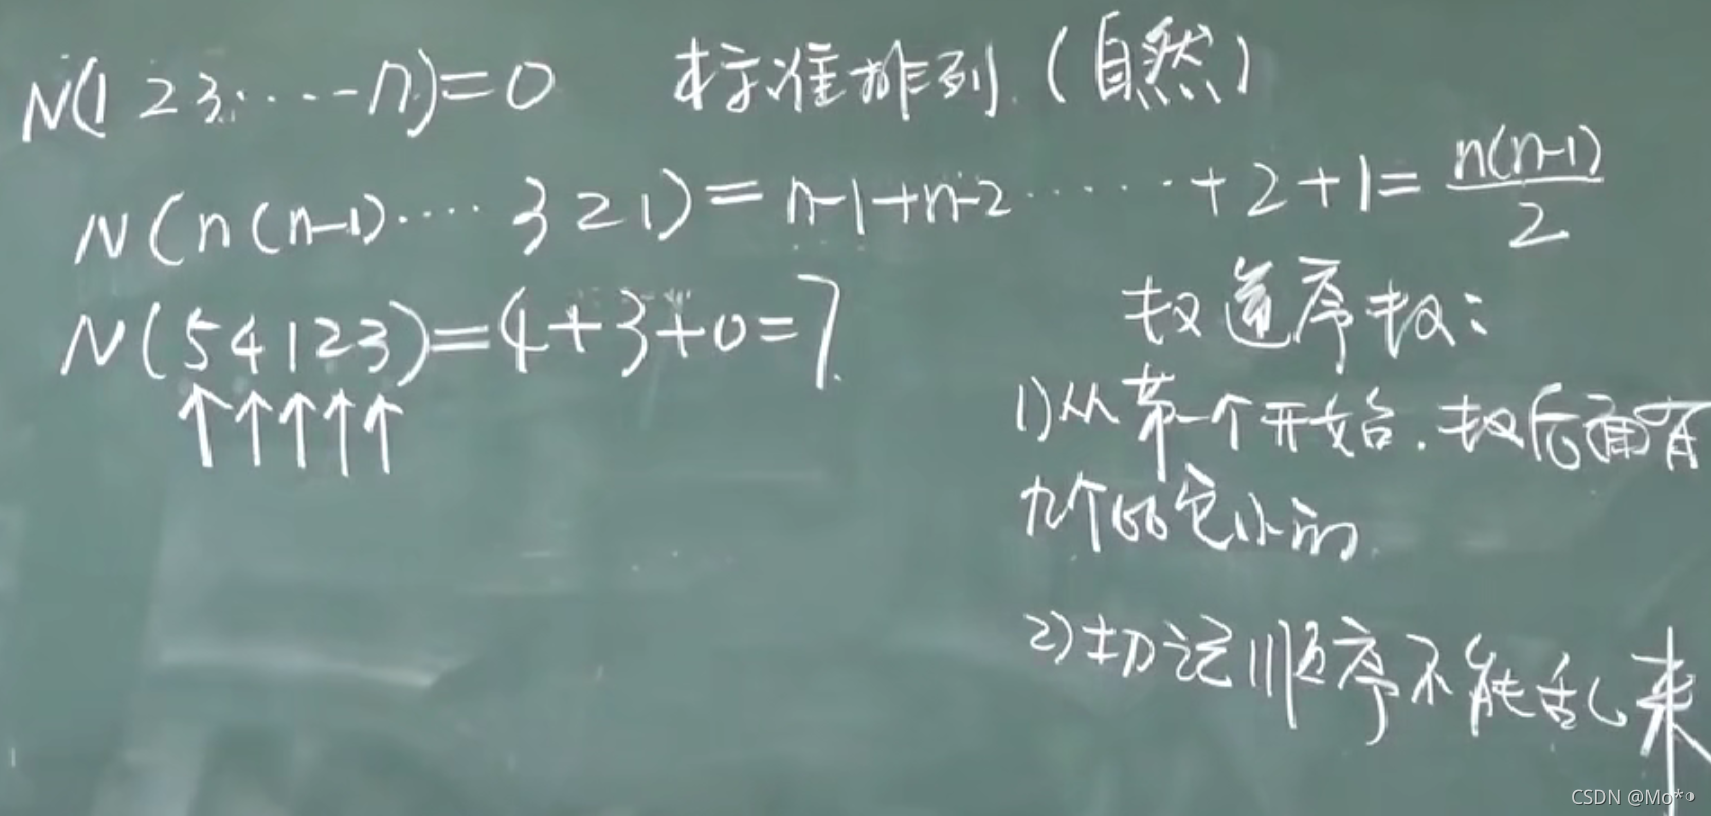 N(1 2 3 ···· n)=0 标准排列 (自然)
N(n(n-1)···· 3 2 1)=n-1+n-2 ······ +2+1=n(n-1)/2
N(54123)=4+3+0=7
找逆序数:
1)从第一个开始.找后面有
几个比它小的
2)切记顺序不能乱来
CSDN @Mo*